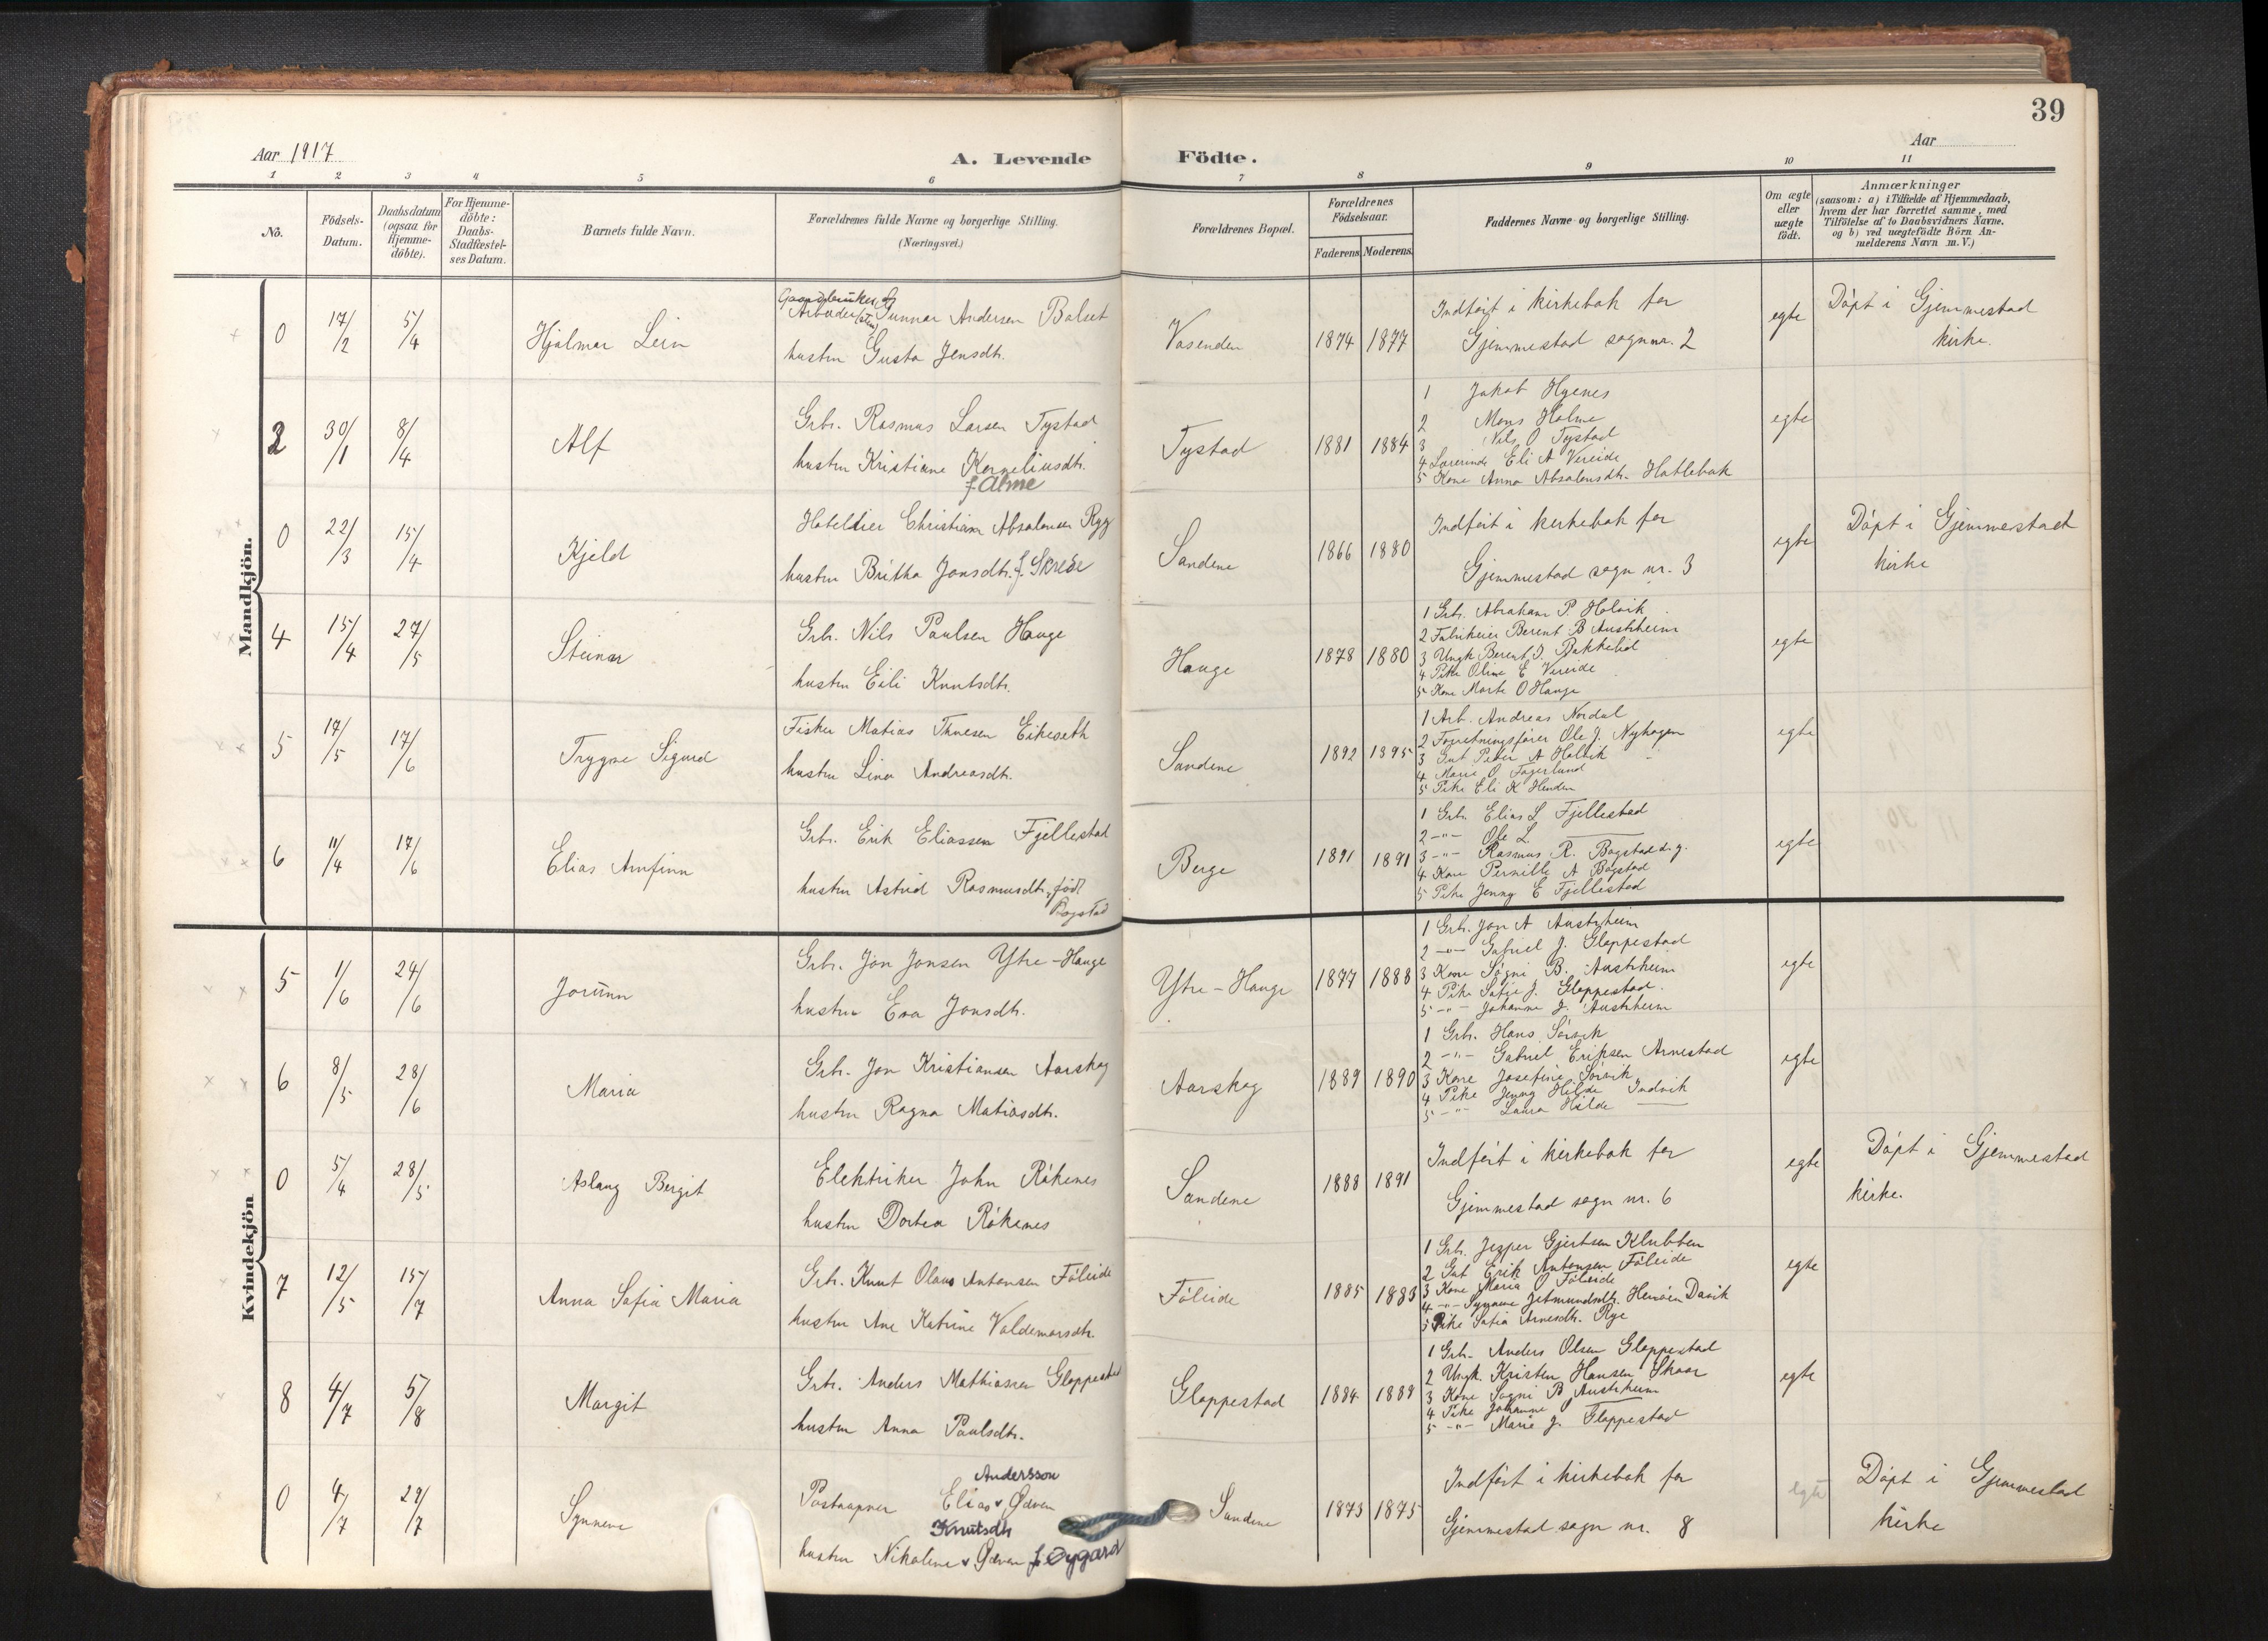 39
Aar 1917
A. Levende Födte.
Aar
1 2 3 4 5 6 7 8 9 10 11
No.
Födsels-
Datum.
Daabsdatum
(ogsaa for
Hjemme-
döbte).
For Hjemme-
döbte:
Daabs-
Stadfæstel-
ses Datum.
Barnets fulde Navn.
Forældrenes fulde Navne og borgerlige Stilling.
(Næringsvei.)
Forældrenes Bopæl.
Forældrenes
Födselsaar.
Faderens Moderens
Faddernes Navne og borgerlige Stilling.
Om ægte
eller
uægte
födt.
Anmærkninger
(saasom: a) i Tilfælde af Hjemmedaab,
hvem der har forrettet samme, med
Tilföielse af to Daabsvidners Navne.
og b) ved uægtefödte Börn An-
melderens Navn m. V.)
Mandkjön.
0 17/2 5/4 Hjalmar Lein
Gaardbruker og
Arbeider Gunnar Andersen Balset
hustru Gusta Jensdtr.
Vasenden 1874 1877
Indført i kirkebok for
Gjemmestad sogn nr. 2
egte
Döpt i Gjemmestad
kirke.
3 30/1 8/4 Alf
Grbr. Rasmus Larsen Tystad
hustru Kristiane Korneliusdtr.
f. Alme
Tystad 1881 1884
1 Jakob Hyenes
2 Mons Holme
3 Nils O Tystad
4 Lærerinde Eli A Vereide
5 Kone Anna Absalonsdtr. Hatlebak
egte
0 22/3 15/4 Kjeld
Hoteleier Christian Absalonsen Rygg
hustru Britha Jonsdtr. f. Skrede
Sandene 1866 1880
Indført i kirkebok for
Gjemmestad sogn nr. 3
egte
Döpt i Gjemmestad
kirke
4 15/4 27/5 Steinar
Grbr. Nils Paulsen Hauge
hustru Eili Knutsdtr.
Hauge 1878 1880
1 Grbr. Abraham P Holvik
2 Fabrikeier Berent B Austrheim
3 Ungk. Berent J. Bakkelid
4 Pike Oline E Vereide
5 Kone Marte O Hauge
egte
5 17/5 17/6 Trygve Sigurd
Fisker Matias Thuesen Eikeseth
hustru Lina Andreasdtr.
Sandene 1892 1895
1 Arb. Andreas Nordal
2 Forretningsfører Ole J. Nyhagen
3 Gut Peder A Holvik
4 Marie O Fagerlund
5 Pike Eli K Henden
egte
6 11/4 17/6 Elias Arnfinn
Grbr. Erik Eliassen Fjellestad
hustru Astrid Rasmusdtr. født
Bogstad
Berge 1891 1891
1 Grbr. Elias L Fjellestad
2 -"- Ole L
3 -"- Rasmus R. Bogstad d.y.
4 Kone Pernille A Bogstad
5 Pike Jenny E Fjellestad
egte
Kvindekjön
5 1/6 24/6 Jorunn
Grbr. Jon Jonsen Ytre-Hauge
hustru Eva Jonsdtr.
Ytre-Hauge 1877 1888
1 Grbr. Jon A Austrheim
2 -"- Gabriel J. Gloppestad
3 Kone Søgni B. Austrheim
4 Pike Sofie J. Gloppestad.
5 -"- Johanne J. Austrheim
egte
6 8/5 28/6 Maria
Grbr. Jon Kristiansen Aarskog
hustru Ragna Matiasdtr.
Aarskog 1889 1890
1 Grbr. Hans Sørvik
2 -"- Gabriel Eriksen Arnestad
3 Kone Josefine Sørvik
4 Pike Jenny Hilde Indvik
5 -"- Laura Hilde
egte
0 5/4 28/5 Aslaug Bergit
Elektriker John Rökenes
hustru Dortea Rökenes
Sandene 1888 1891
Indført i kirkebok for
Gjemmestad sogn nr. 6
egte
Döpt i Gjemmestad
kirke.
7 12/5 15/7 Anna Sofia Maria
Grbr. Knut Olaus Antonsen Föleide
hustru Ane Katrine Valdemarsdtr.
Föleide 1885 1883
1 Grb. Jesper Gjertsen Klubben
2 Gut Erik Antonsen Föleide
3 Kone Maria O Föleide
4 -"- Synneve Jetmundsdtr. Davik
5 Pike Sofia Arnesdtr. Rye
egte
8 4/7 5/8 Margit
Grbr. Anders Mathiassen Gloppestad
hustru Anna Paulsdtr.
Gloppestad 1884 1889
1 Grb. Anders Olsen Gloppestad
2 Ungk. Kristen Hansen Skaar
3 Kone Søgni B Austrheim
4 Pike Johanne
5 -"- Marie J. Gloppestad
egte
0 4/7 29/7 Synneve
Andersson
Postaapner Elias v Ødven
Knutsdtr
hustru Nikoline v Ødven f. Øygard
Sandene 1873 1875
Indført i kirkebok for
Gjemmestad sogn nr. 8
egte
Döpt i Gjemmestad
kirke